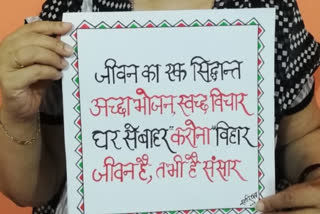 जीवन का एक सिद्धान्त
अच्छा भोजन, स्वच्छ विचार
घर से बाहर "करोना" विहार
जीवन है, तभी है संसार